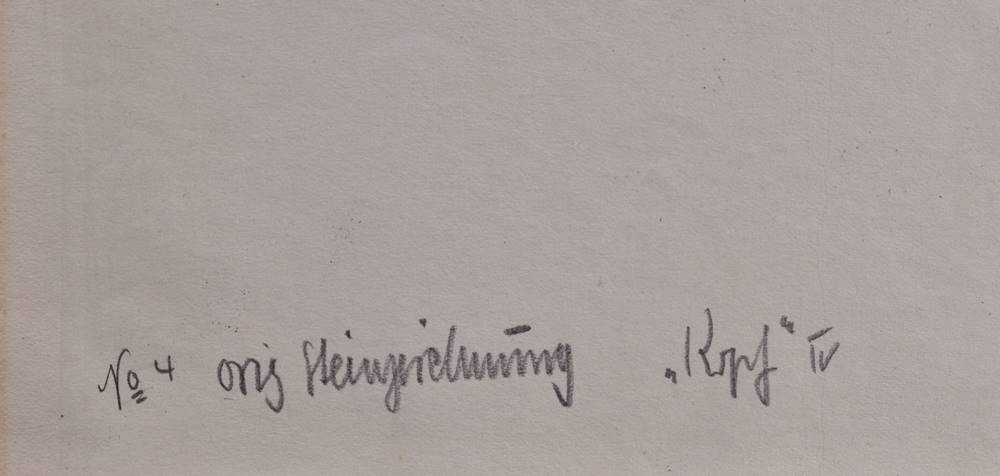 No 4 orig Steinzeichnung „Kopf“ IV